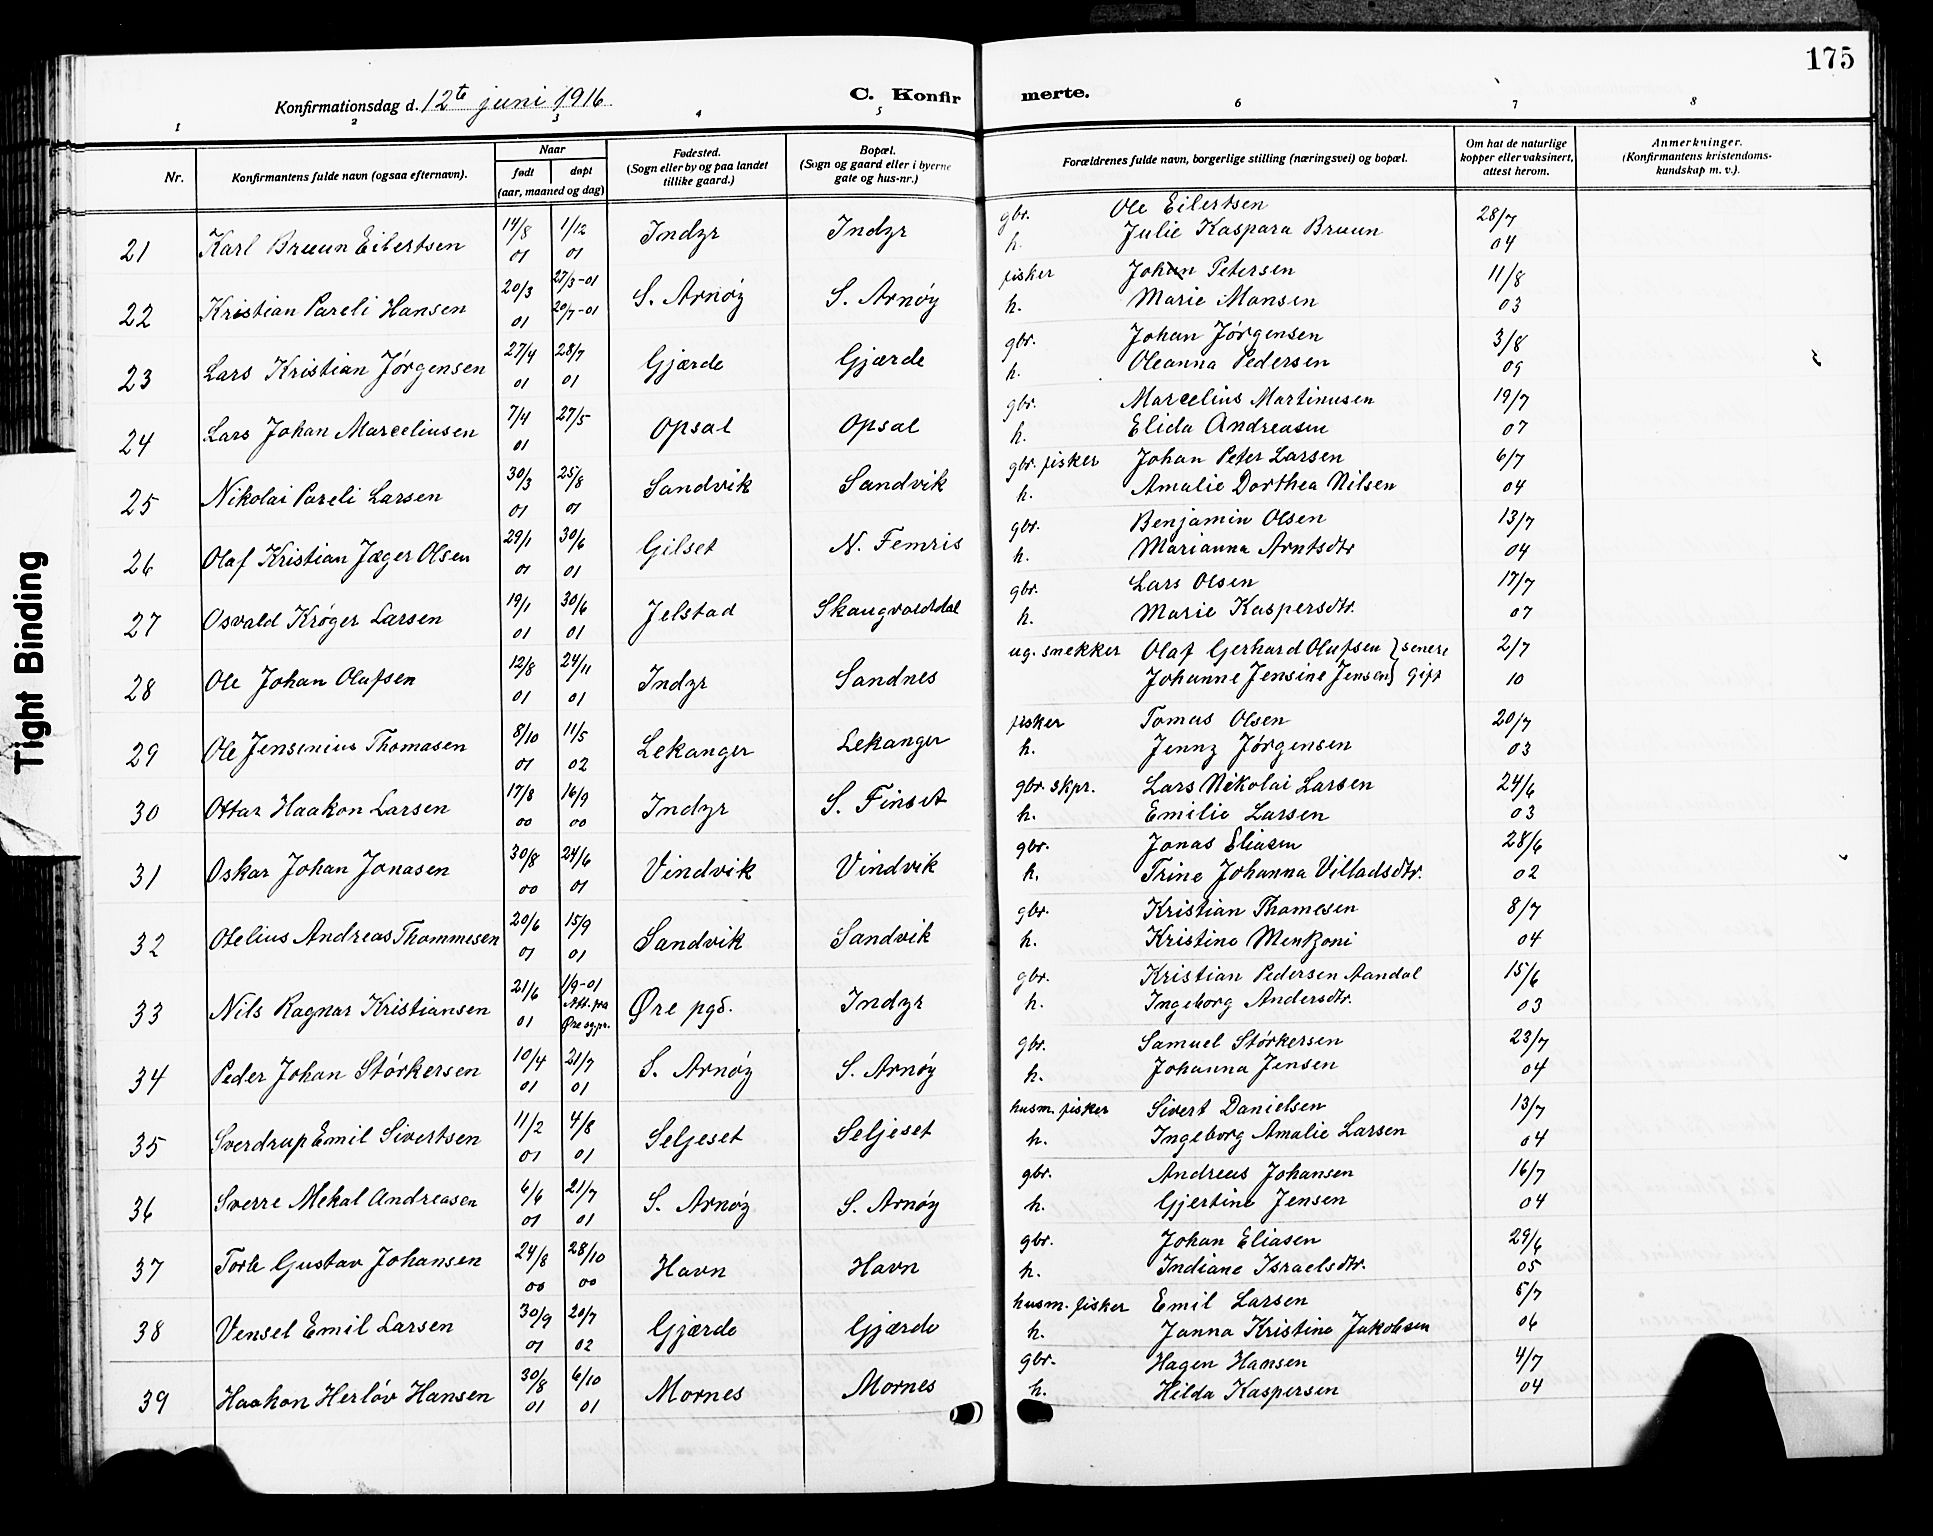 175
Konfirmationsdag d. 12te juni 1916.
C. Konfirmerte.
1 2 3 4 5 6 7 8
Nr. | Konfirmantens fulde navn (ogsaa efternavn). | Naar født døpt (aar, maaned og dag) | Fødested. (Sogn eller by og paa landet tillike gaard.) | Bopæl. (Sogn og gaard eller i byerne gate og hus-nr.) | Forældrenes fulde navn, borgerlige stilling (næringsvei) og bopæl. | Om hat de naturlige kopper eller vaksinert, attest herom. | Anmerkninger. (Konfirmantens kristendomskundskap m. v.).
21 Karl Bruun Eilertsen 14/8 01 1/12 01 Indyr Indyr gbr. Ole Eilertsen h. Julie Kaspara Bruun 28/7 04
22 Kristian Pareli Hansen 20/3 01 27/3-01 20/7-01 S. Arnøy S. Arnøy fisker Johan Petersen h. Marie Monsen 11/8 03
23 Lars Kristian Jørgensen 27/4 01 28/7 01 Gjærde Gjærde gbr. Johan Jørgensen h. Oleanna Pedersen 3/8 09
24 Lars Johan Marceliusen 7/4 01 27/5 Opsal Opsal gbr. Marcelius Martinusen h. Elida Andreasen 19/7 07
25 Nikolai Pareli Larsen 30/3 01 25/8 01 Sandvik Sandvik gbr. fisker Johan Peter Larsen h. Amalie Dorthea Nilsen 6/7 04
26 Olaf Kristian Jæger Olsen 29/1 01 30/6 01 Gilset N. Femris gbr. Benjamin Olsen h. Marianna Arntsdtr 13/7 04
27 Osvald Krøger Larsen 19/1 01 30/6 01 Jelstad Skaugvolddal gbr. Lars Olsen h. Marie Kaspersdtr. 17/7 07
28 Ole Johan Olafsen 12/8 01 24/11 01 Indyr Sandnes ug. snekker Olaf Gerhard Olufsen } senere Johanne Jensine Jensen } gift 2/7 10
29 Ole Jensenius Thomasen 8/10 01 11/5 02 Lekanger Lekanger fisker Tomas Olsen h. Jenny Jørgensen 20/7 03
30 Ottar Haakon Larsen 17/8 00 16/9 00 Indyr S. Finset gbr. skpr. Lars Nikolai Larsen h. Emilie Larsen 24/6 03
31 Oskar Johan Jonasen 30/8 00 24/6 01 Vindvik Vindvik gbr. Jonas Eliasen h. Trine Johanna Villadsdtr. 28/6 02
32 Otelius Andreas Thommesen 20/6 01 15/9 01 Sandvik Sandvik gbr. Kristian Thomesen h. Kristine Menzoni 8/7 04
33 Nils Ragnar Kristiansen 21/6 01 1/9-01 Att. fra Øre sgpr. Øre pgd. Indyr gbr. Kristian Pedersen Aandal h. Ingeborg Andersdtr. 15/6 03
34 Peder Johan Størkersen 10/4 01 21/7 01 S. Arnøy S. Arnøy gbr. Samuel Størkersen h. Johanna Jensen 23/7 04
35 Sverdrup Emil Sivertsen 11/2 01 4/8 01 Seljeset Seljeset husm. fisker Sivert Danielsen h. Ingeborg Amalie Larsen 13/7 04
36 Sverre Mekal Andreasen 6/6 01 21/7 01 S. Arnøy S. Arnøy gbr. Andreas Johansen h. Gjertine Jensen 16/7 04
37 Torle Gustav Johansen 24/8 00 28/10 00 Havn Havn gbr. Johan Eliasen h. Indiane Israelsdtr. 29/6 05
38 Vensel Emil Larsen 30/9 01 20/7 02 Gjærde Gjærde husm. fisker Emil Larsen h. Janna Kristine Jakobsen 5/7 06
39 Haakon Herløv Hansen 30/8 01 6/10 01 Mornes Mornes gbr. Hagen Hansen h. Hilda Kaspersen 4/7 04
Tight Binding